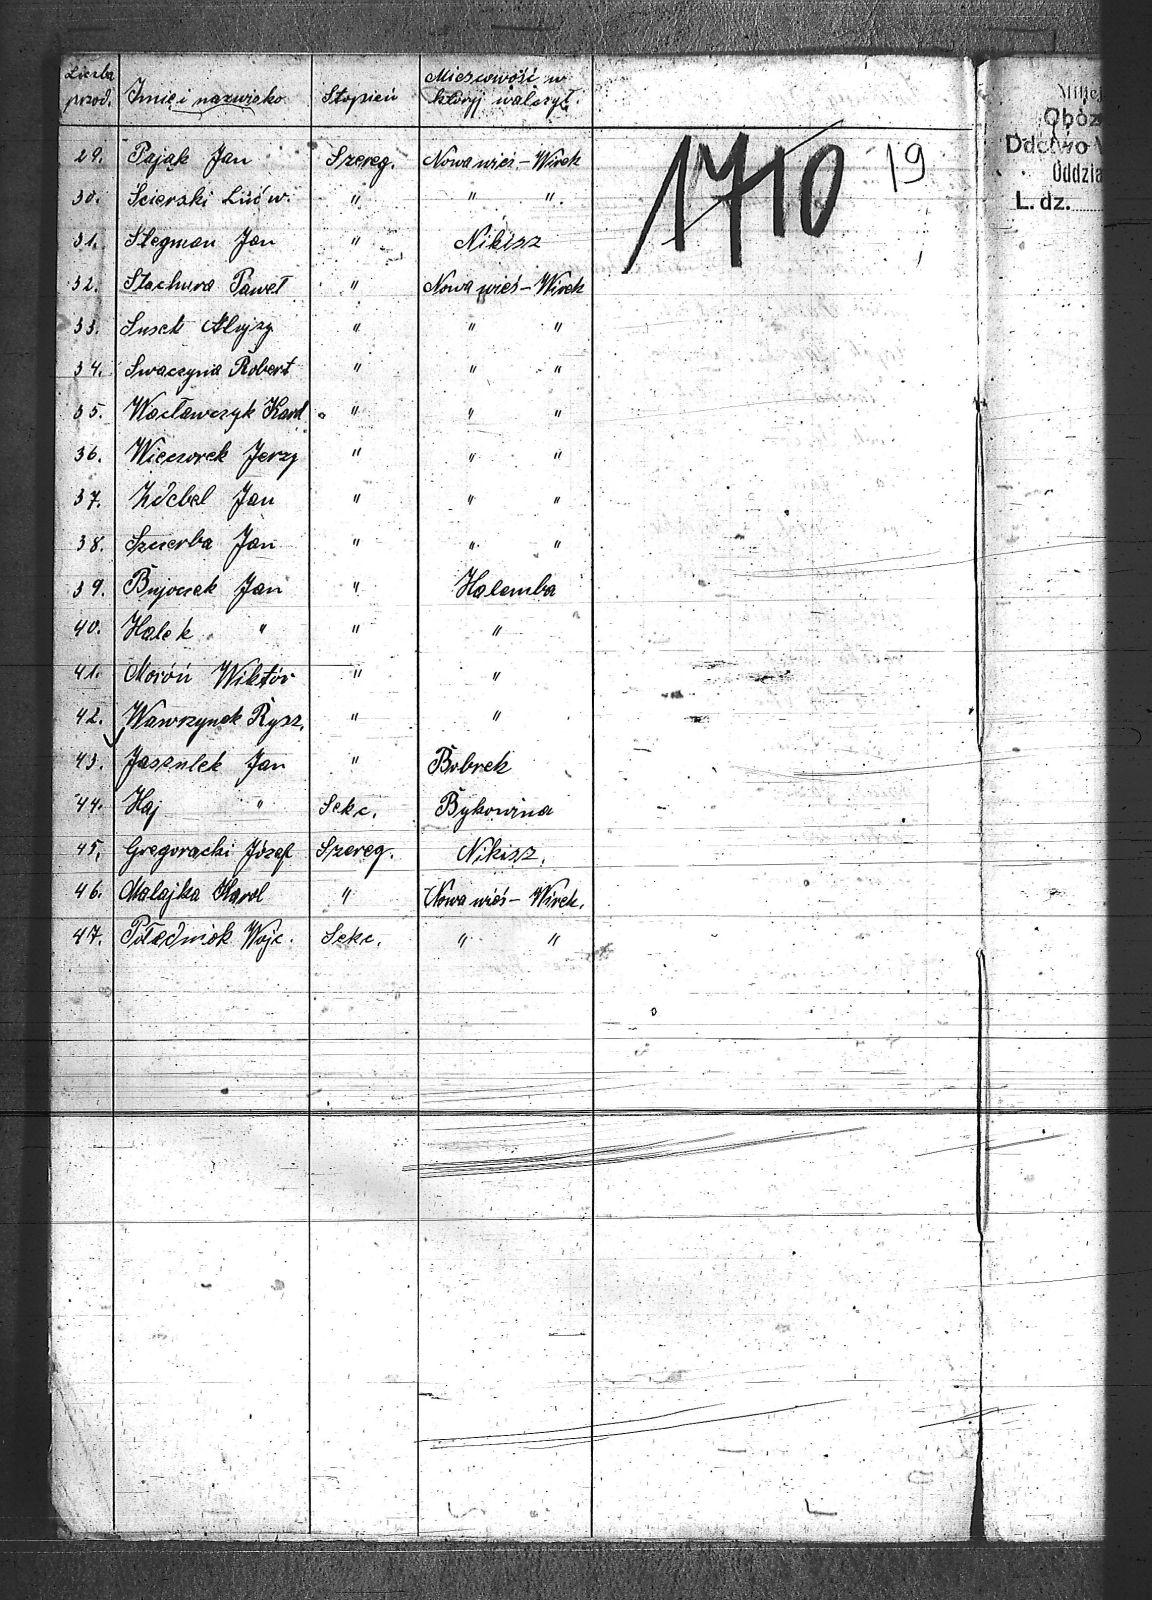 Liczba porząd. Imię i nazwisko Stopień Miejscowość w której walczył.
29. Pająk Jan Szereg. Nowa wieś - Wirek
30. Scierski Ludw. " " "
31. Stegman Jan " Nikisz
32. Stachura Paweł " Nowa wieś - Wirek
33. Susek Alojzy " " "
34. Swaczyna Robert " " "
35. Wacławczyk Karol " " "
36. Wieczorek Jerzy " " "
37. Jan " " "
38. Szczerba Jan " " "
39. Bujoczek Jan " Halemba
40. Halek " " "
41. Moroń Wiktor " "
42. Wawrzynek Rysz. " "
43. Jaszulek Jan " Bobrek
44. Haj " Sekc. Bykowina
45. Gregoracki Józef Szereg. Nikisz.
46. Malajka Karol " Nowa wieś - Wirek.
47. Połedniok Wojc. Sekc. " "
1710
19
Obóz
Ddctwo
Oddzia
L. dz.